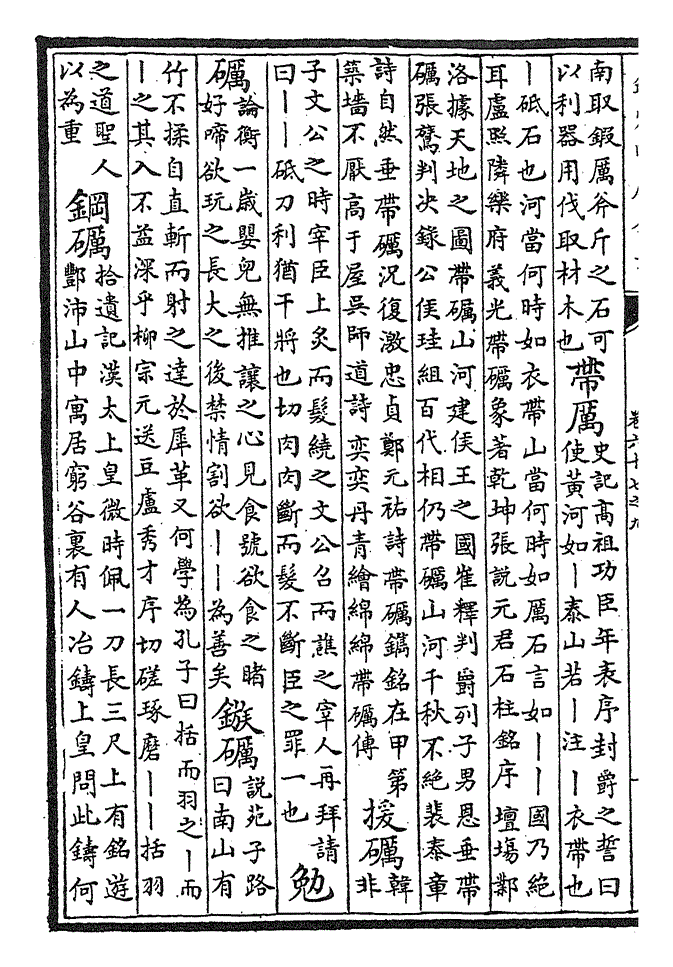 南取鍜厲斧斤之石可
以利器用伐取材木也
帶厲
史記高祖功臣年表序封爵之誓曰
使黃河如｜泰山若｜注｜衣帶也
｜砥石也河當何時如衣帶山當何時如厲石言如｜｜國乃絕
耳盧照隣樂府義光帶礪象著乾坤張說元君石柱銘序壇塲鄴
洛據天地之圖帶礪山河建侯王之國崔釋判爵列子男恩垂帶
礪張鷟判決錄公侯珪組百代相仍帶礪山河千秋不絕裴泰章
詩自然垂帶礪況復激忠貞鄭元祐詩帶礪鐫銘在甲第
築墻不厭高于屋吳師道詩奕奕丹青繪綿綿帶礪傳
援礪
韓
非
子文公之時宰臣上炙而髮繞之文公召而譙之宰人再拜請
曰｜｜砥刀利猶干將也切肉肉斷而髮不斷臣之罪一也
勉
礪
論衡一歲嬰兒無推讓之心見食號欲食之睹
好啼欲玩之長大之後禁情割欲｜｜為善矣
鏃礪
說苑子路
曰南山有
竹不揉自直斬而射之達於犀革又何學為孔子曰括而羽之｜而
｜之其入不益深乎柳宗元送豆盧秀才序切磋琢磨｜｜括羽
之道聖人
以為重
鋼礪
拾遺記漢太上皇微時佩一刀長三尺上有銘遊
酆沛山中寓居窮谷裏有人冶鑄上皇問此鑄何
卷六十七之九